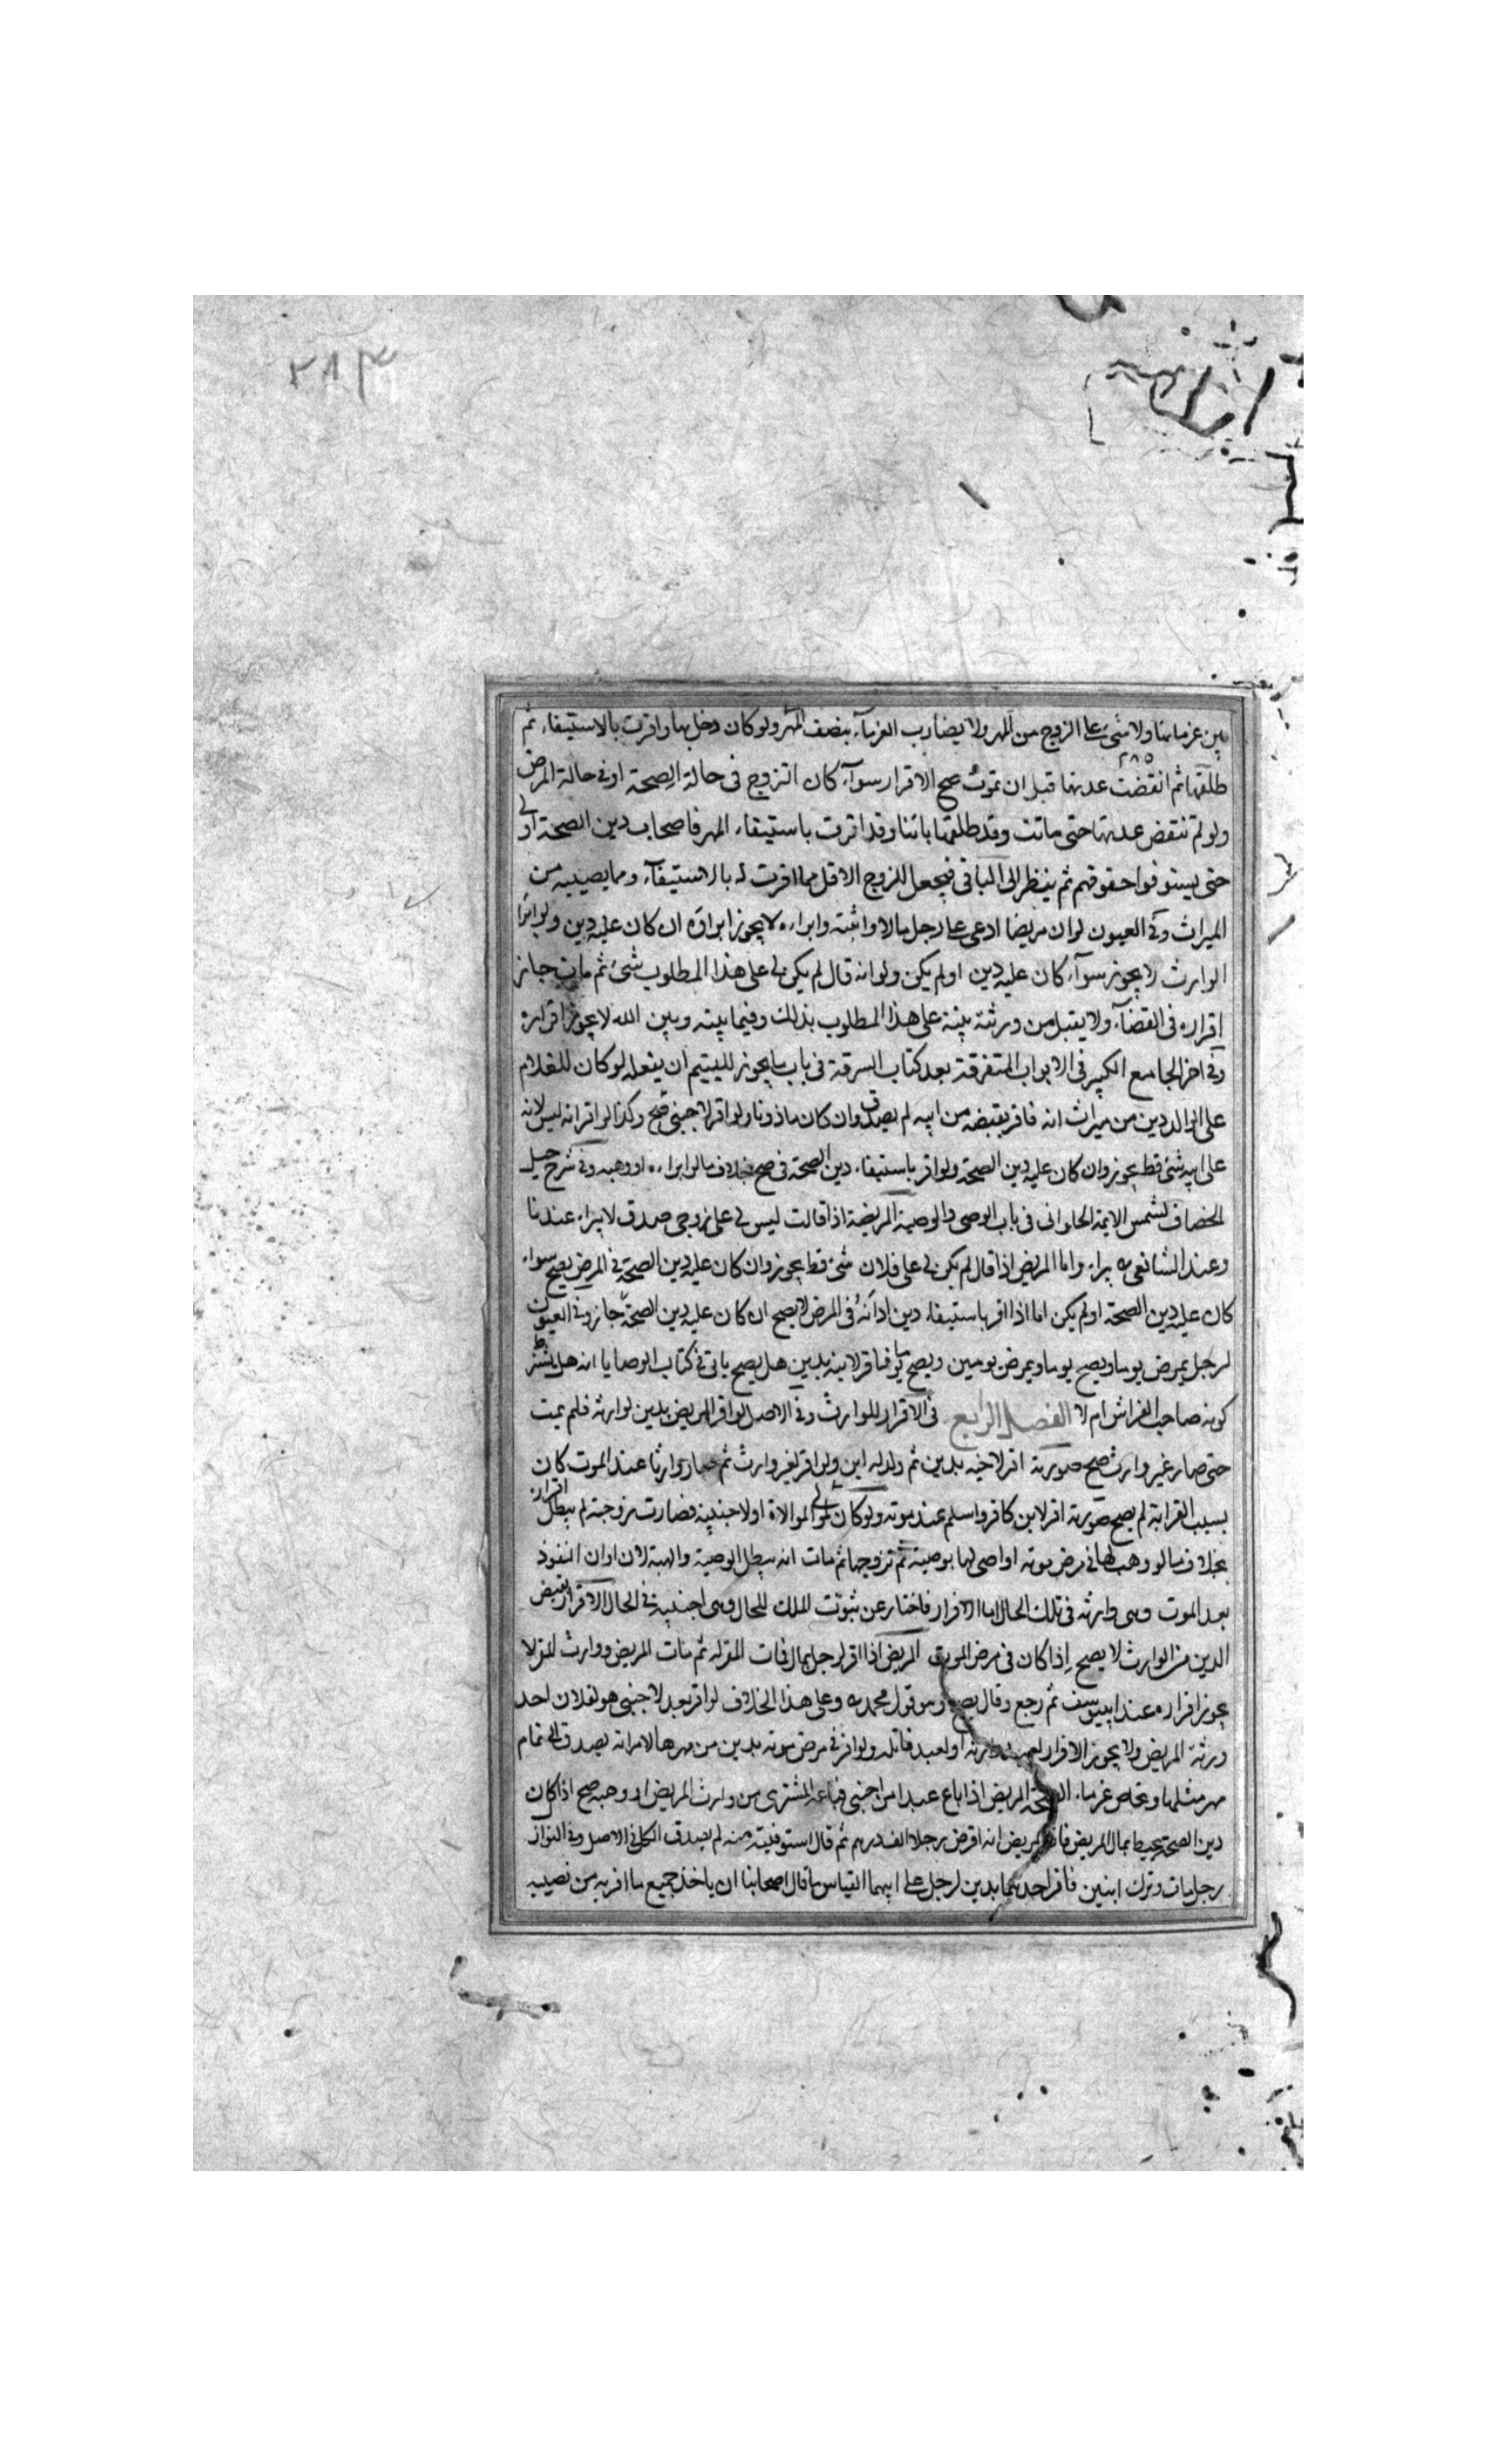 ٢٨٣
بين غرمائها ولا شئ على الزوج من المهر ولا يضارب الغرماء بنصف المهر ولو كان دخل بها واقرت بالاستيفاء ثم
٢٨٥
طلقها ثم انقضت عدتها قبل ان تموت صح الاقرار سواء كان التزوج فى حالة الصحة او فى حالة المرض
ولو لم تنقض عدتها حتى ماتت وقد طلقها بائنا وقد اقرت باستيفاء المهر فاصحاب دين الصحة اولى
حتى يستوفوا حقوقهم ثم ينظر الى الباقى فيجعل للزوج الاقل مما اقرت له بالاستيفاء ومما يصيبه من
الميراث وفى العيون لو ان مريضا ادعى على رجل مالا واثبته وابراه لا يجوز ابراؤه ان كان عليه دين ولو ابرأ
الوارث لا يجوز سواء كان عليه دين او لم يكن ولو انه قال لم يكن لى على هذا المطلوب شئ ثم مات جاز
اقراره فى القضاء ولا يقبل من ورثته بينة على هذا المطلوب بذلك وفيما بينه وبين الله لا يجوز اقراره
وفى اخر الجامع الكبير فى الابواب المتفرقة بعد كتاب السرقة فى باب ما يجوز لليتيم ان يفعله لو كان للغلام
على الوالد دين من ميراث امه فاقر بقبضه من ابيه لم يصدق وان كان ماذونا ولو اقر لاجنبى صح وكذا لو اقر انه ليس له
على ابيه شئ قط يجوز وان كان عليه دين الصحة ولو اقر باستيفاء دين الصحة فى صح بخلاف ما لو ابراه او وهبه وفى شرح حيل
الخصاف لشمس الايمة الحلوانى فى باب الوصى والوصية المريضة اذا قالت ليس لى على زوجى صداق لا يبراء عندنا
وعند الشافعى يبراء واما المريض اذا قال لم يكن لى على فلان شئ قط يجوز وان كان عليه دين الصحة فى المرض يصح سواء
كان عليه دين الصحة او لم يكن اما اذا اقر باستيفاء دين ادانه فى المرض لا يصح ان كان عليه دين الصحة جاز وفى العيون
لرجل يمرض يوما ويصح يوما ويمرض يومين ويصح يوما فاقر لابنه بدين هل يصح ياتى فى كتاب الوصايا انه هل يشترط
كونه صاحب الفراش ام لا الفصل الرابع فى الاقرار للوارث وفى الاصل لو اقر المريض بدين لوارثه فلم يمت
حتى صار غير وارث صح صورته اقر لاخيه بدين ثم ولد له ابن ولو اقر لغير وارث ثم صار وارثا عند الموت كان
بسبب القرابة لم يصح صورته اقر لابن كافر واسلم عند موته ولو كان الموالاة او لاجنبية فصارت زوجته لم يبطل اقراره
بخلاف ما لو وهب لها فى مرض موته او اوصى لها بوصية ثم تزوجها ثم مات انه يبطل الوصية والهبة لان اوان النفوذ
بعد الموت وهى وارثه فى تلك الحال اما الاقرار فاخبار عن ثبوت الملك للحال وهى اجنبية فى الحال الاقرار بقبض
الدين من الوارث لا يصح اذا كان فى مرض الموت المريض اذا اقر لرجل بمال فمات المقر له ثم مات المريض ووارث المقر له
يجوز اقراره عند ابييوسف ثم رجع وقال يصح وهو قول محمد وعلى هذا الخلاف لو اقر بعبد لاجنبى هو لفلان احد
ورثة المريض ولا يجوز الاقرار لعبد وارثه او لعبد قاتله ولو اقر فى مرض موته بدين من مهرها لامراته يصدق الى تمام
مهر مثلها ويحاص غرماء الصحة المريض اذا باع عبدا من اجنبى فباعه المشترى من وارث المريض او وهبه صح اذا كان
دين الصحة يحيط بمال المريض فاقر المريض انه اقرض رجلا الف درهم ثم قال استوفيته منه لم يصدق الكل فى الاصل وفى النوازل
رجل مات وترك ابنين فاقر احدهما بدين لرجل على ابيهما القياس ما قال اصحابنا ان ياخذ جميع ما اقر به من نصيبه